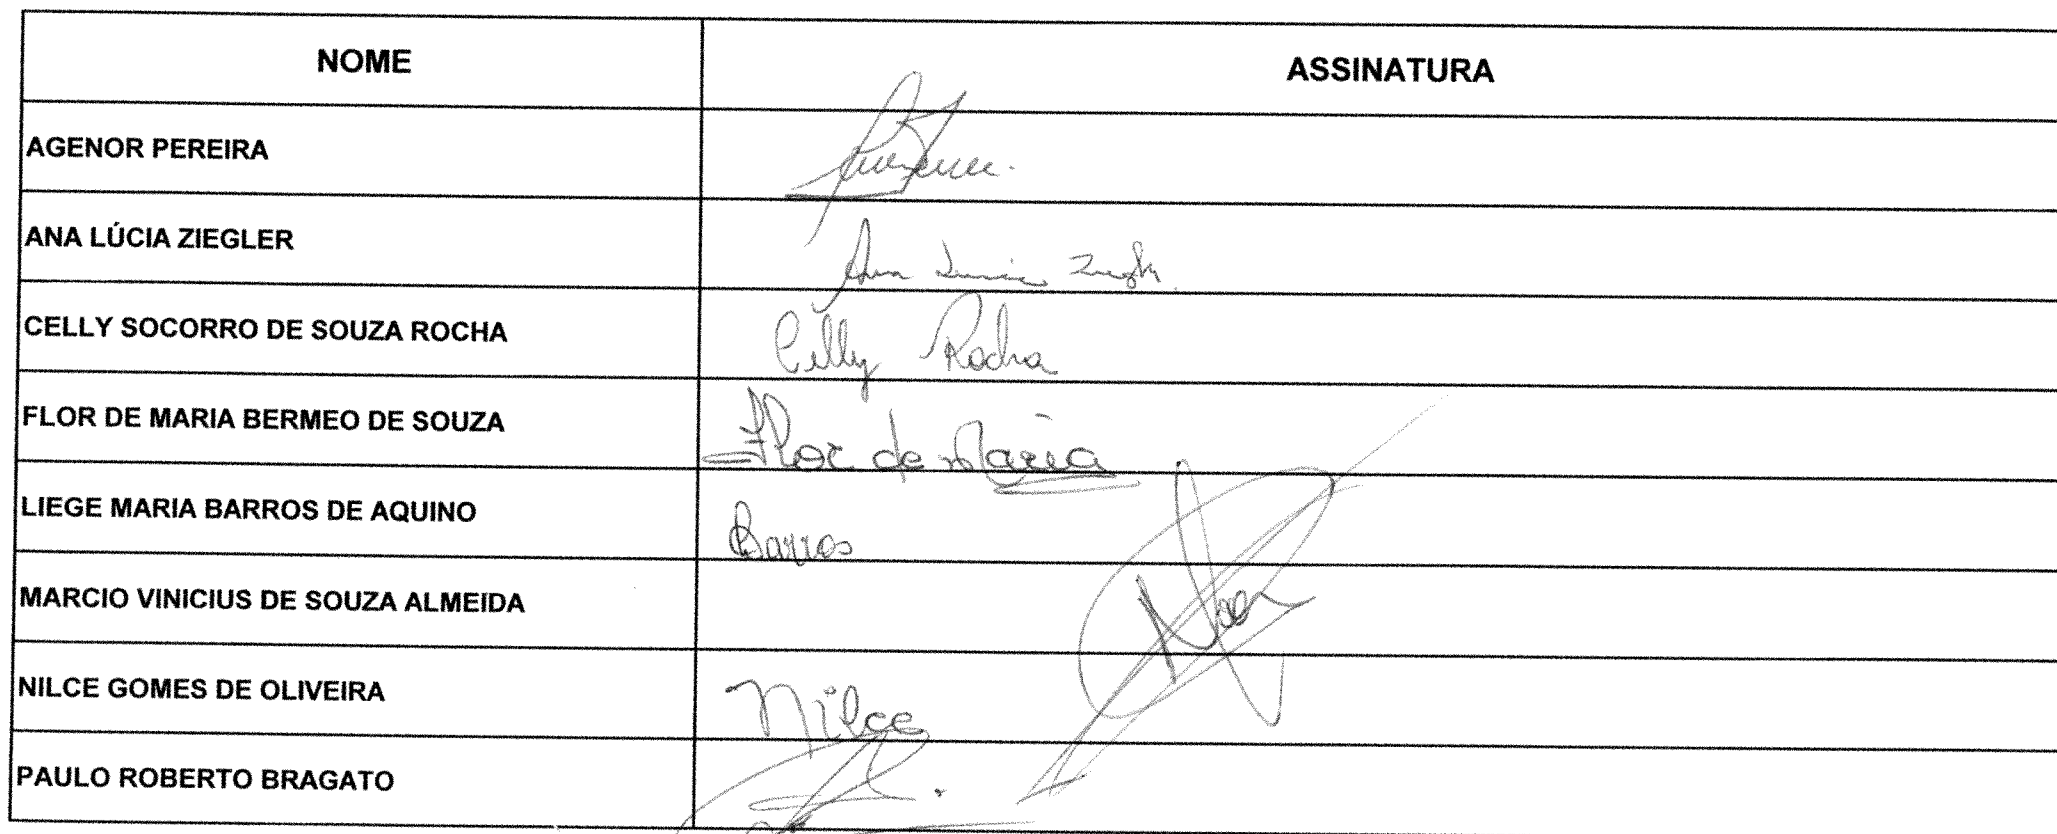 NOME ASSINATURA
AGENOR PEREIRA
ANA LÚCIA ZIEGLER Ana Lucia
CELLY SOCORRO DE SOUZA ROCHA Celly Rocha
FLOR DE MARIA BERMEO DE SOUZA Flor de Maria
LIEGE MARIA BARROS DE AQUINO Barros
MARCIO VINICIUS DE SOUZA ALMEIDA
NILCE GOMES DE OLIVEIRA Nilce
PAULO ROBERTO BRAGATO